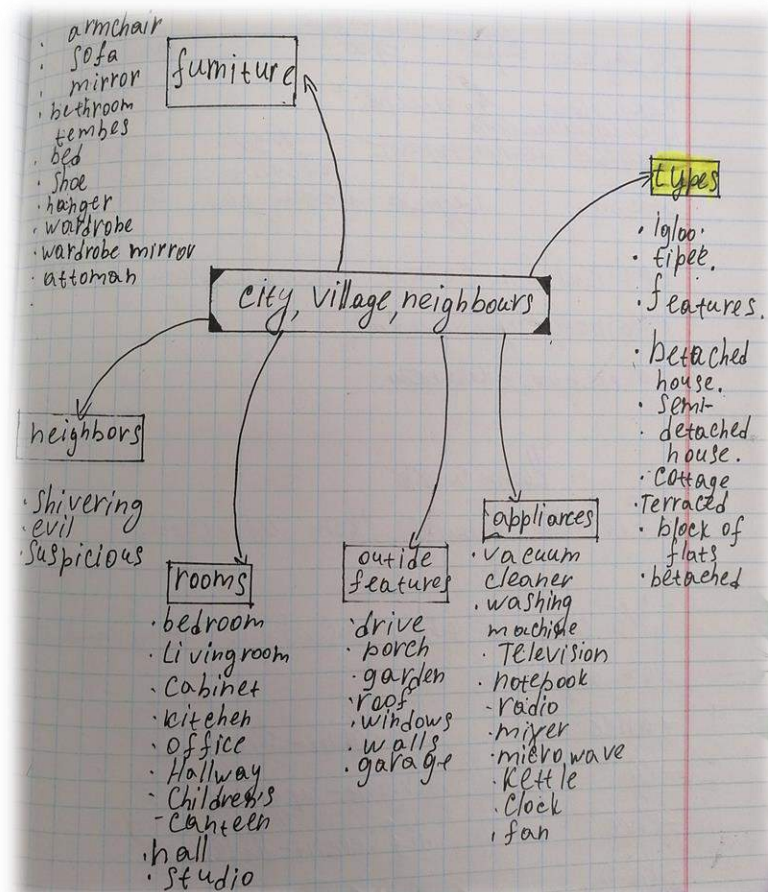 armchair
sofa
mirror
bethroom
tembes
bed
shoe
hanger
wardrobe
wardrobe mirror
attoman
furniture
types
igloo.
tipee.
features.
betached
house.
semi-
detached
house.
cottage
Terraced
block of
flats
betached
city, village, neighbours
neighbors
shivering
evil
suspicious
rooms
bedroom
Livingroom
Cabinet
kitchen
office
Hallway
Children's
canteen
hall
studio
outide
features
drive
porch
garden
roof
windows
walls
garage
appliances
vacuum
cleaner
washing
machine
Television
notebook
radio
mixer
microwave
Kettle
Clock
fan